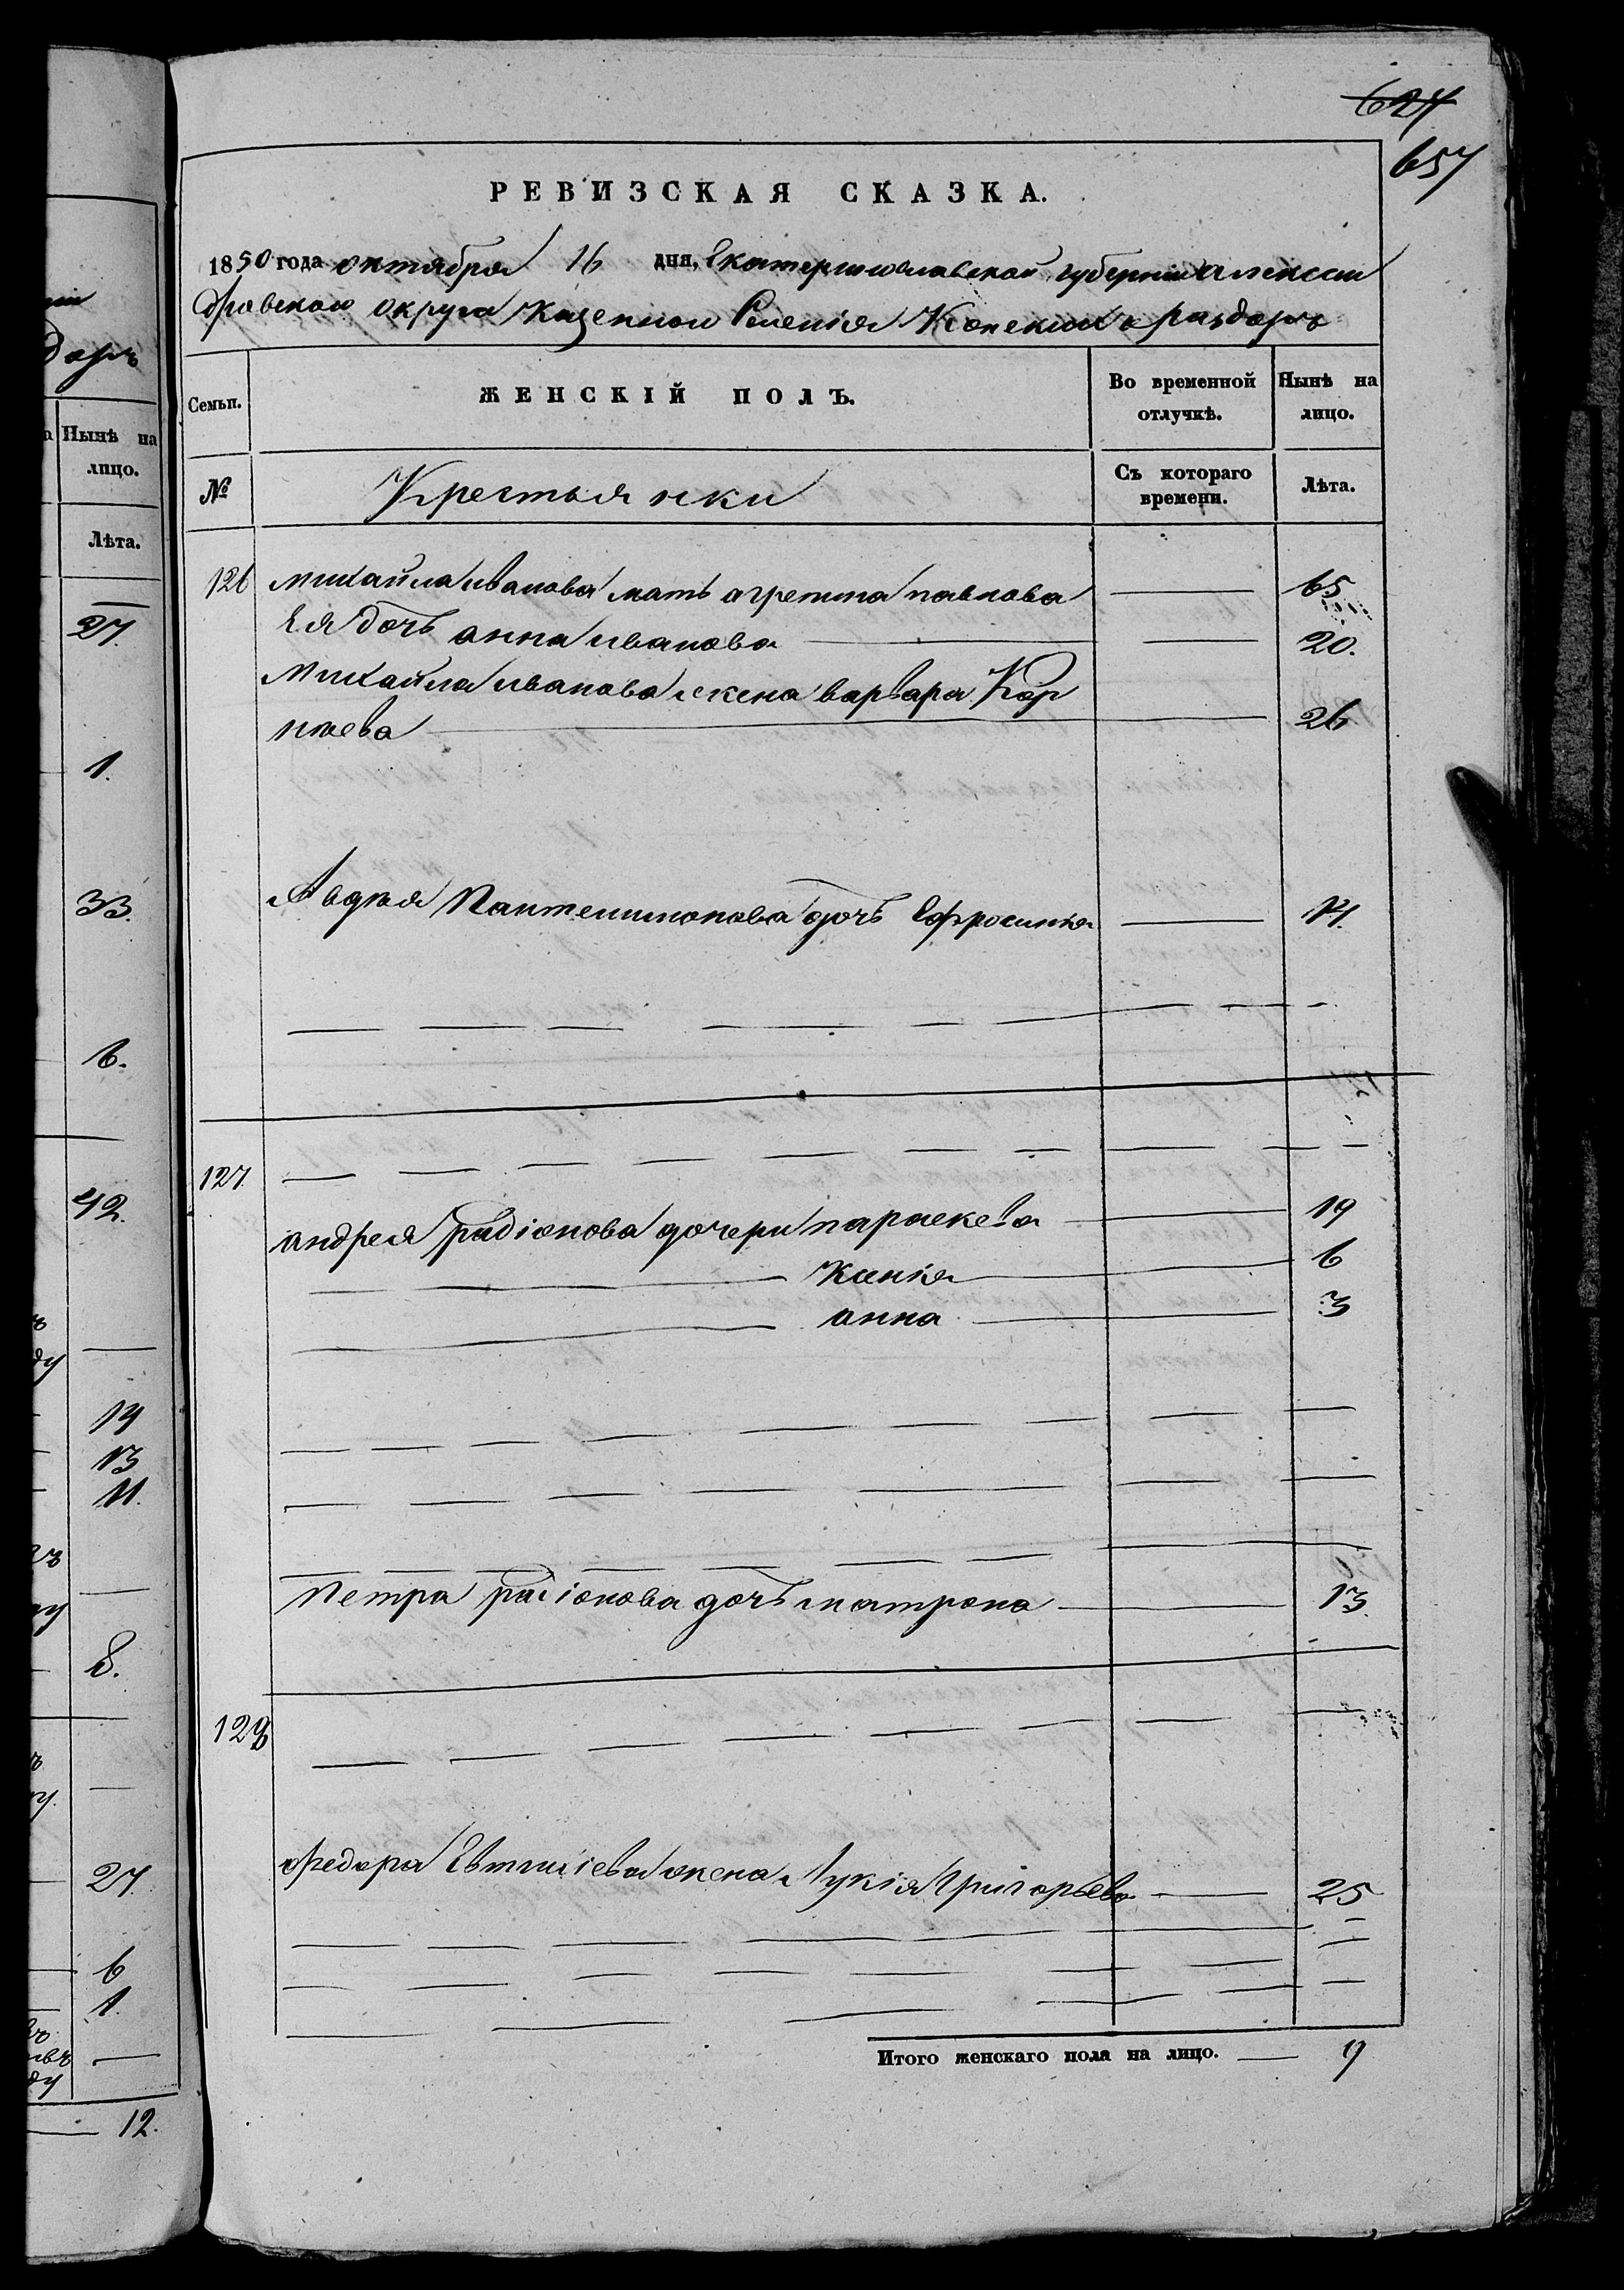 624
657
РЕВИЗСКАЯ СКАЗКА.
1850 года октября 16 дня, Екатеринославской губерніи Алексан
дровского округа Казенного Селенія Конскихъ раздоръ
Семьи. ЖЕНСКІЙ ПОЛЪ. Во временной отлучкѣ. Нынѣ на лицо.
№ Крестьянки Съ котораго времени. Лѣта.
126 Михайла Иванова мать агрепина павлова — 65
Ея дочь анна иванова — 20.
Михайла Иванова жена варвара Кор
нѣева — 26
Авдѣя Пантелимонова дочь Ефросинія — 14.
127
андрея радіонова дочери параскева — 19
— Ксенія — 6
— анна — 3
Петра радіонова дочь матрона — 13.
128
федора Евтихіева жена Лукія Григорьева — 25
Итого женскаго пола на лицо. — 9
доръ
Нынѣ на
лицо.
Лѣта.
27.
1.
33.
6.
42.
14
13
11.
8.
27.
6
1.
12.